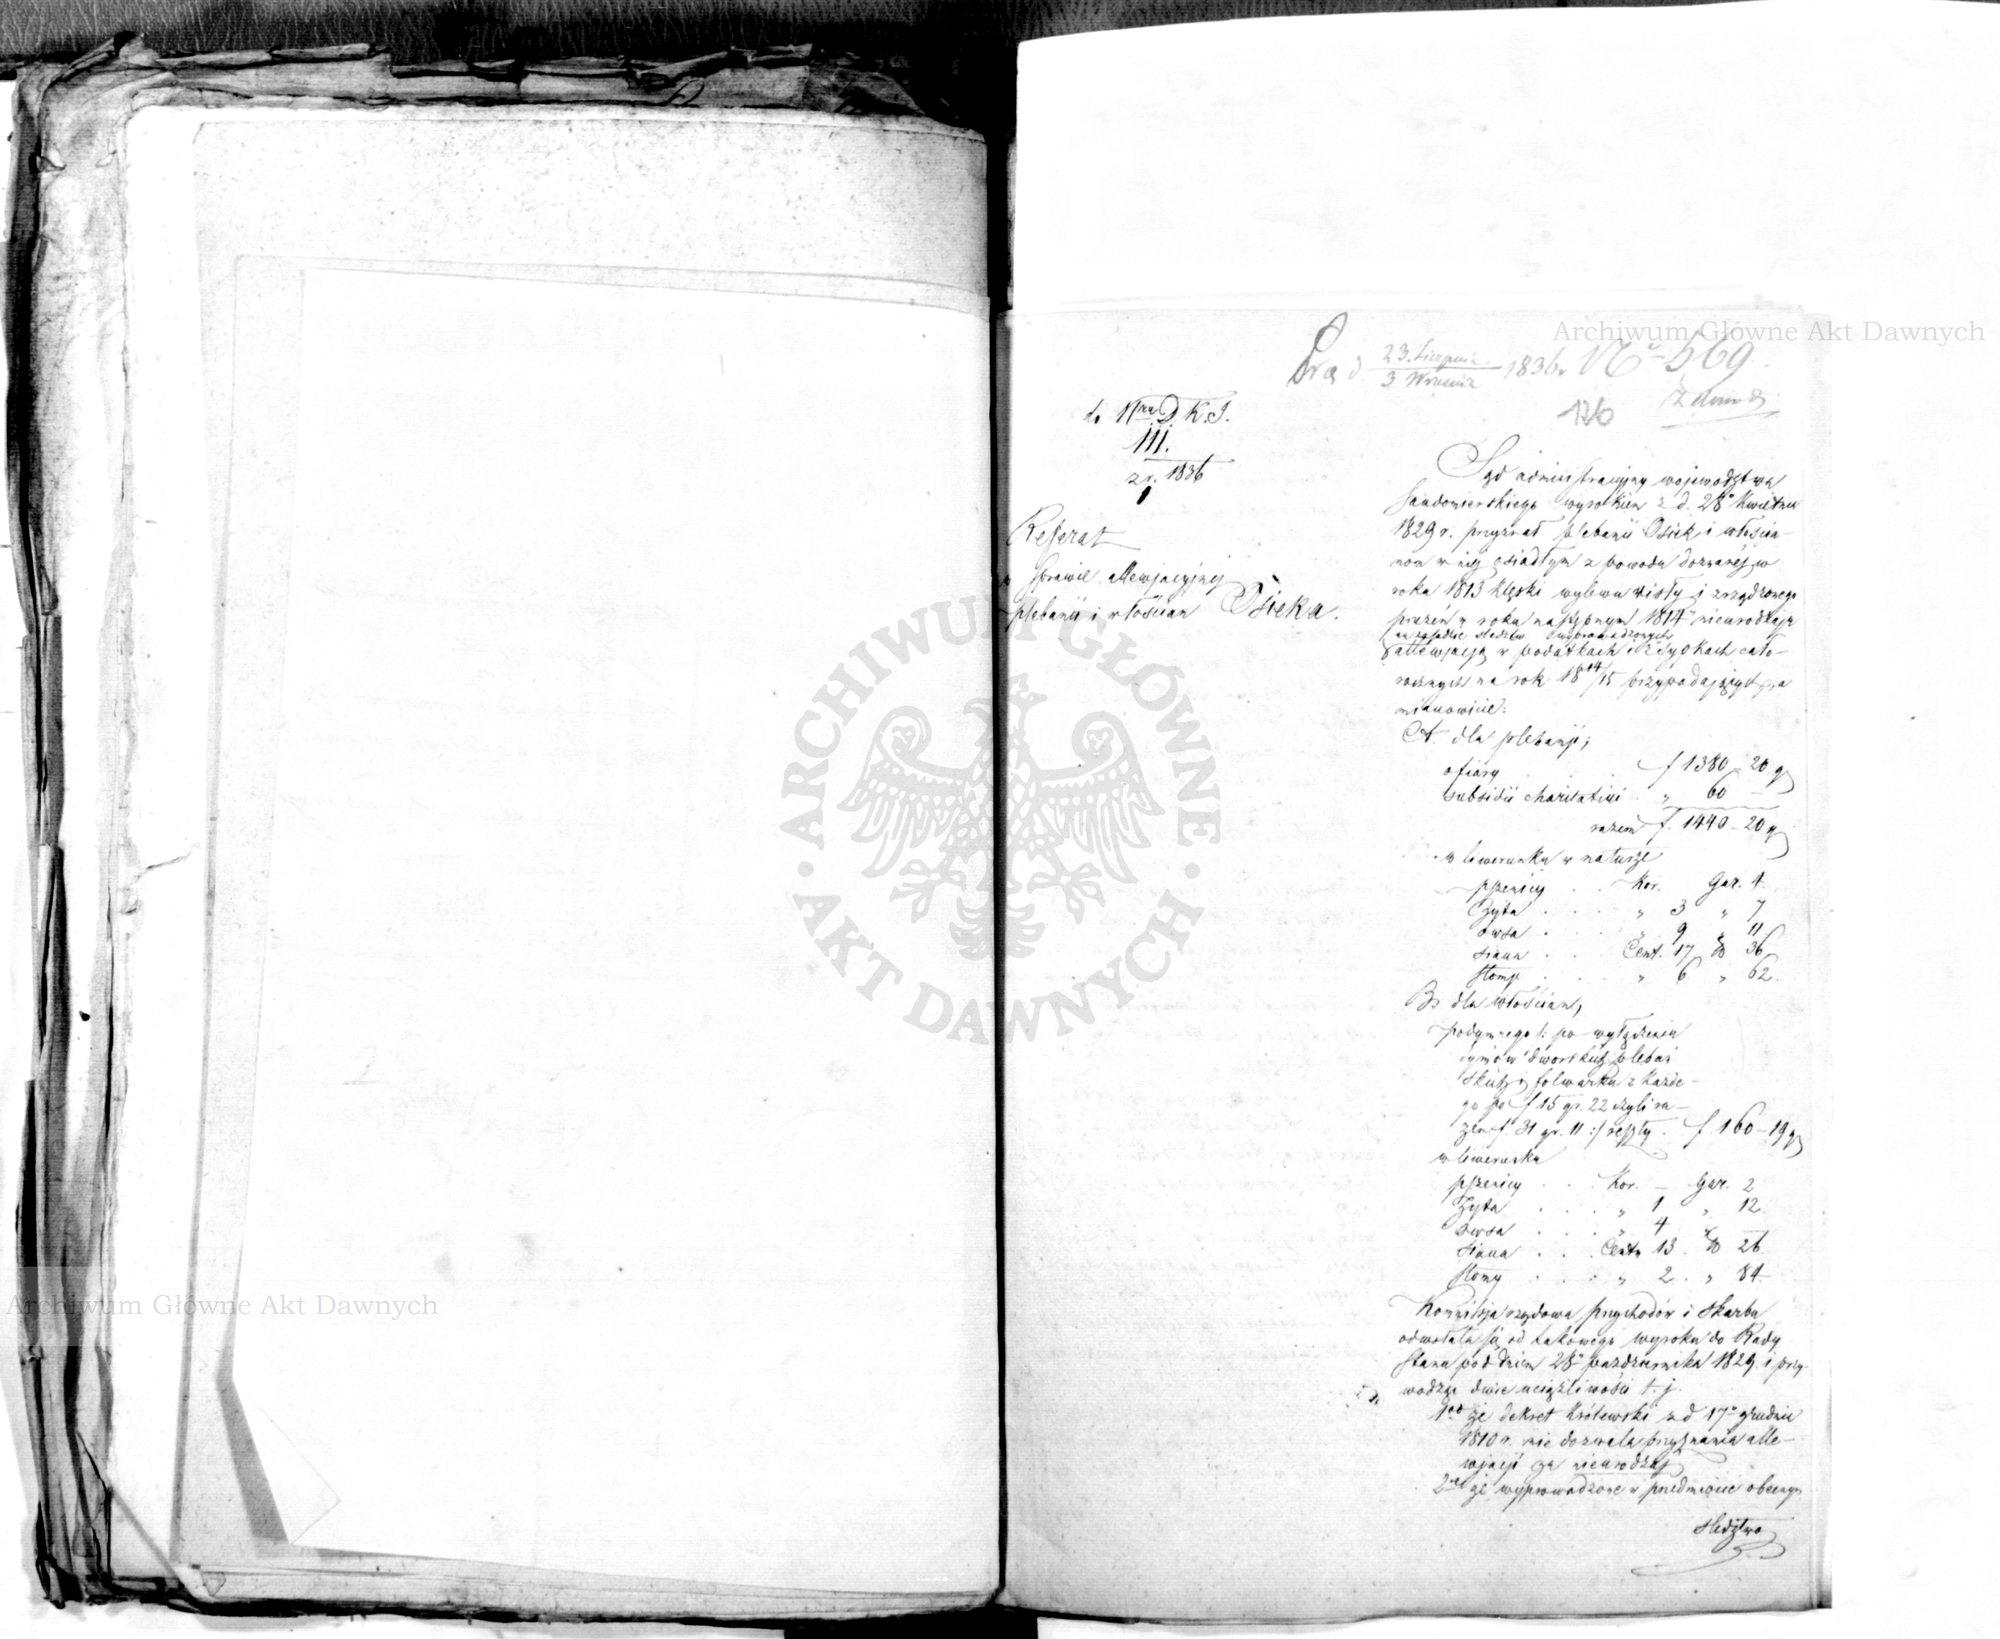 Archiwum Główne Akt Dawnych
23. Sierpnia
3. Września 1836 r. No 569.
126
do Nru D. K. J.
111.
z r. 1836
Referat
w sprawie allewjacyjnej
plebanii i włościan Osieka.
Sąd administracyjny województwa
Sandomierskiego wyrokiem z d. 28o kwietnia
1829 r. przyznał plebanii Osiek i włościa-
nom w niej osiadłym z powodu doznanej w
roku 1813 klęski wylewu Wisły i zrządzonego
przezeń w roku następnym 1814m nieurodzaju
na zasadzie śledztw wyprowadzonych
allewjacją w podatkach i liwerunkach cało-
rocznych na rok 1814/15 przypadających a
mianowicie:
A. dla plebanji;
ofiary . . . f 1380 - 20 g
subsidii charitativi . „ 60 -
razem f. 1440 - 20 g
w liwerunku w naturze
pszenicy . . Kor. Gar. 4.
Żyta . . . „ 3 „ 7
owsa . . . „ 9 „ 11
siana . . . Cent. 17 ℔ 36
słomy . . . „ 6 „ 62.
B. dla włościan,
podymnego /: po wyłączeniu
dymów dworskich pleban
skich i folwarku z każde-
go po f 15 gr. 22 czyli ra-
zem f. 31 gr. 11 :/ reszty . f. 160 - 19 g
w liwerunku
pszenicy . . . Kor. — Gar. 2
Żyta . . . „ 1 „ 12
Owsa . . . „ 4 „ —
siana . . . Centn 13 . ℔ 26
słomy . . . „ 2 . „ 84
Kommissja rządowa przychodów i skarbu
odwołała się od takowego wyroku do Rady
Stanu pod dniem 28o października 1829. i przy-
wodząc dwie uciążliwości t. j.
1od że dekret Królewski z d 17o grudnia
1810 r. nie dozwala przyznania alle-
wjacji za nieurodzaj
2re że wyprowadzone w przedmiocie obecnym
śledztwo
ARCHIWUM GŁÓWNE · AKT DAWNYCH ·
Archiwum Główne Akt Dawnych